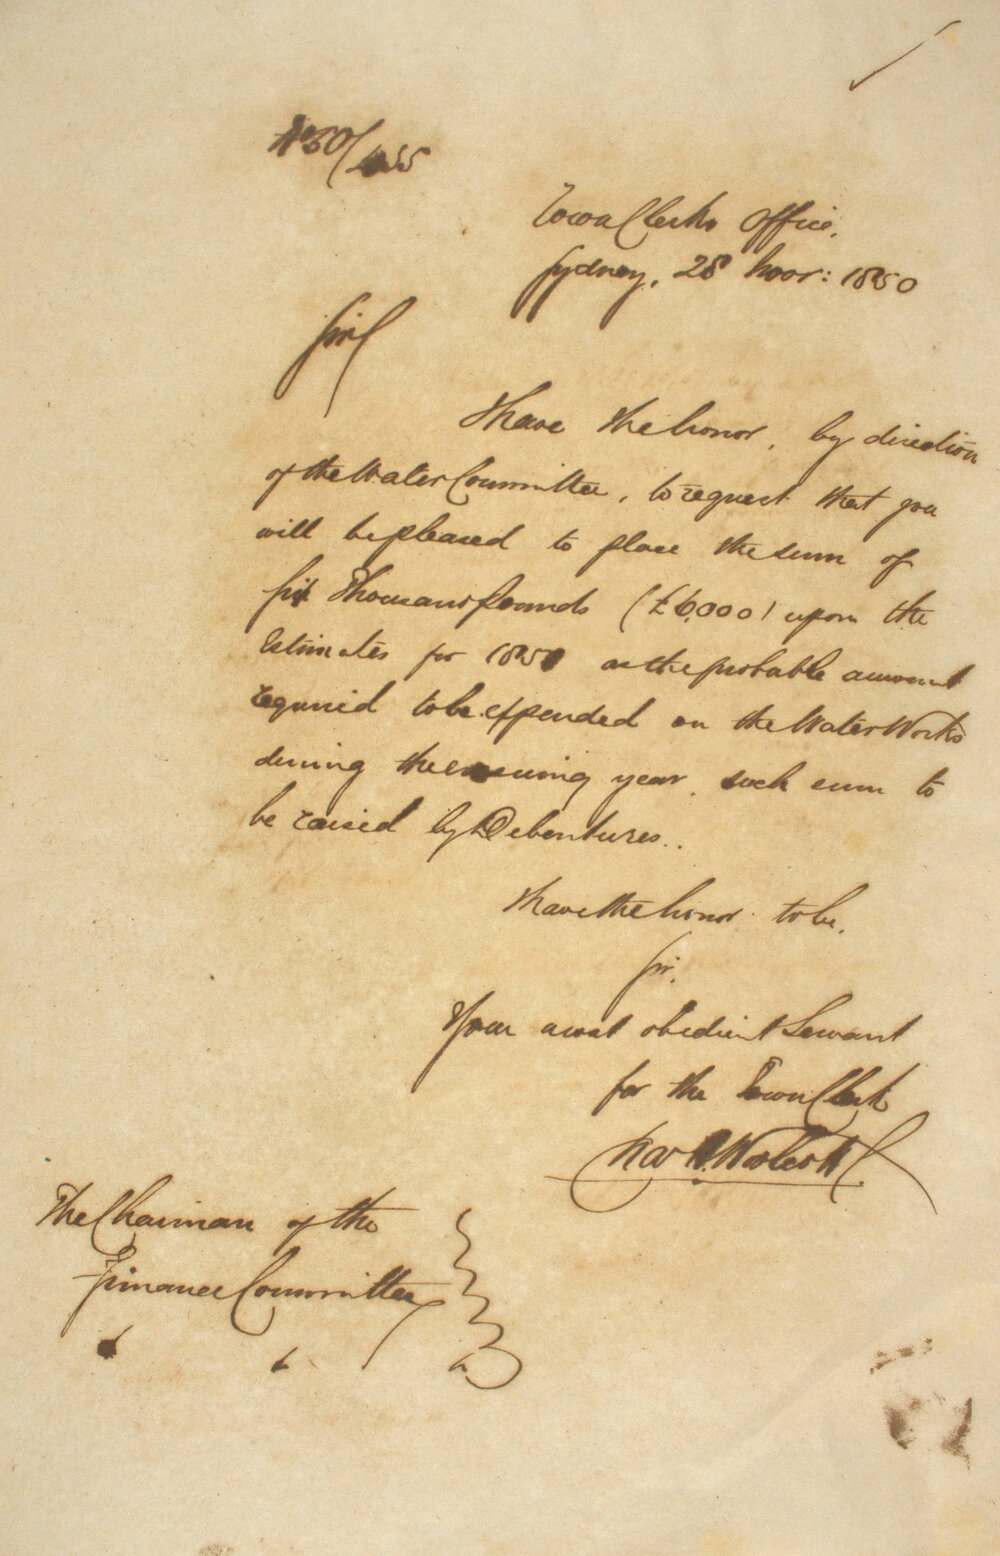 No 50/455
Town Clerks Office,
Sydney, 28 Novr: 1850
Sir
I have the honor, by direction
of the Water Committee, to request that you
will be pleased to place the sum of
Six Thousand pounds (£6,000) upon the
Estimates for 1851 as the probable amount
required to be expended on the Water Works
during the ensuing year, such sum to
be raised by Debentures.
I have the honor to be,
Sir,
Your most obedient Servant
for the Town Clerk
The Chairman of the
Finance Committee